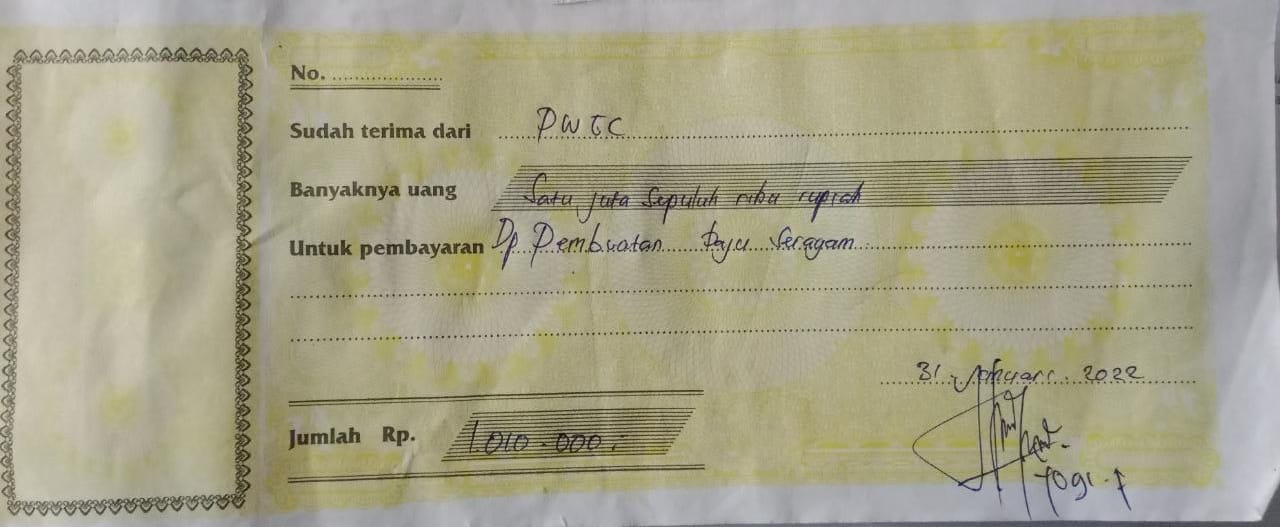 No. ....................
Sudah terima dari PWTC
Banyaknya uang Satu juta Sepuluh ribu rupiah
Untuk pembayaran Dp Pembuatan Baju Seragam
31 Januari 2022
Jumlah Rp. 1.010.000,-
Yogi. F